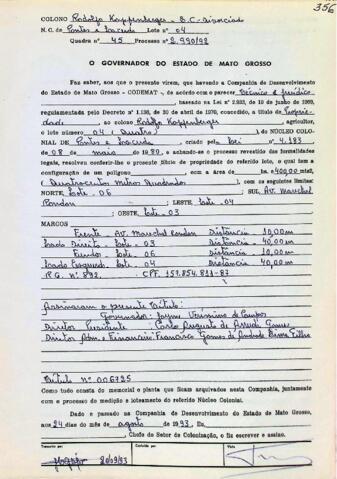 356
COLONO Rodolfo Kappenberger - S.C. - Associado
N. C. de Pontes e Lacerda Lote n.º 04
Quadra nº 45 Processo nº 2.990/92
O GOVERNADOR DO ESTADO DE MATO GROSSO
Faz saber, aos que o presente virem, que havendo a Companhia de Desenvolvimento
do Estado de Mato Grosso - CODEMAT -, de acordo com o parecer Técnico e Jurídico
, baseado na Lei nº 2.933, de 10 de junho de 1969,
regulamentada pelo Decreto nº 1.138, de 20 de abril de 1970, concedido, a título de Proprie
dade, ao colono Rodolfo Kappenberger, agricultor,
o lote número 04 (Quatro) do NÚCLEO COLO-
NIAL DE Pontes e Lacerda, criado pela Lei nº 4.183
de 08 de maio de 1980, e achando-se o processo revestido das formalidades
legais, resolveu conferir-lhe o presente título de propriedade do referido lote, o qual tem a
configuração de um polígono com a área de ha 400,00 mts²
(Quatrocentos Metros Quadrados), com os seguintes limites:
NORTE, Lote - 06 SUL, Av. Marechal
Rondon; LESTE, Lote - 04
; OESTE, Lote - 03
MARCOS
Frente Av. Marechal Rondon Distância 10,00m
Lado Direito - Lote - 03 Distância - 40,00m
Fundos - Lote - 06 Distância - 10,00m
Lado Esquerdo - Lote 04 Distância 40,00m
R.G. Nº 892. CPF. 151.854.811-87
Assinaram o presente Título:
Governador: Jayme Veríssimo de Campos
Diretor Presidente: Carlo Augusto de Arruda Gomes
Diretor Adm. e Financeiro: Francisco Gomes de Andrade Lima Filho
Título Nº 006795
Como tudo consta do memorial e planta que ficam arquivados nesta Companhia, juntamente
com o processo de medição e loteamento do referido Núcleo Colonial.
Dado e passado na Companhia de Desenvolvimento do Estado de Mato Grosso,
aos 24 dias do mês de agosto de 1993. Eu
, Chefe do Setor de Colonização, o fiz escrever e assino.
Transcrito por
Conferido por
Visto
20/09/93